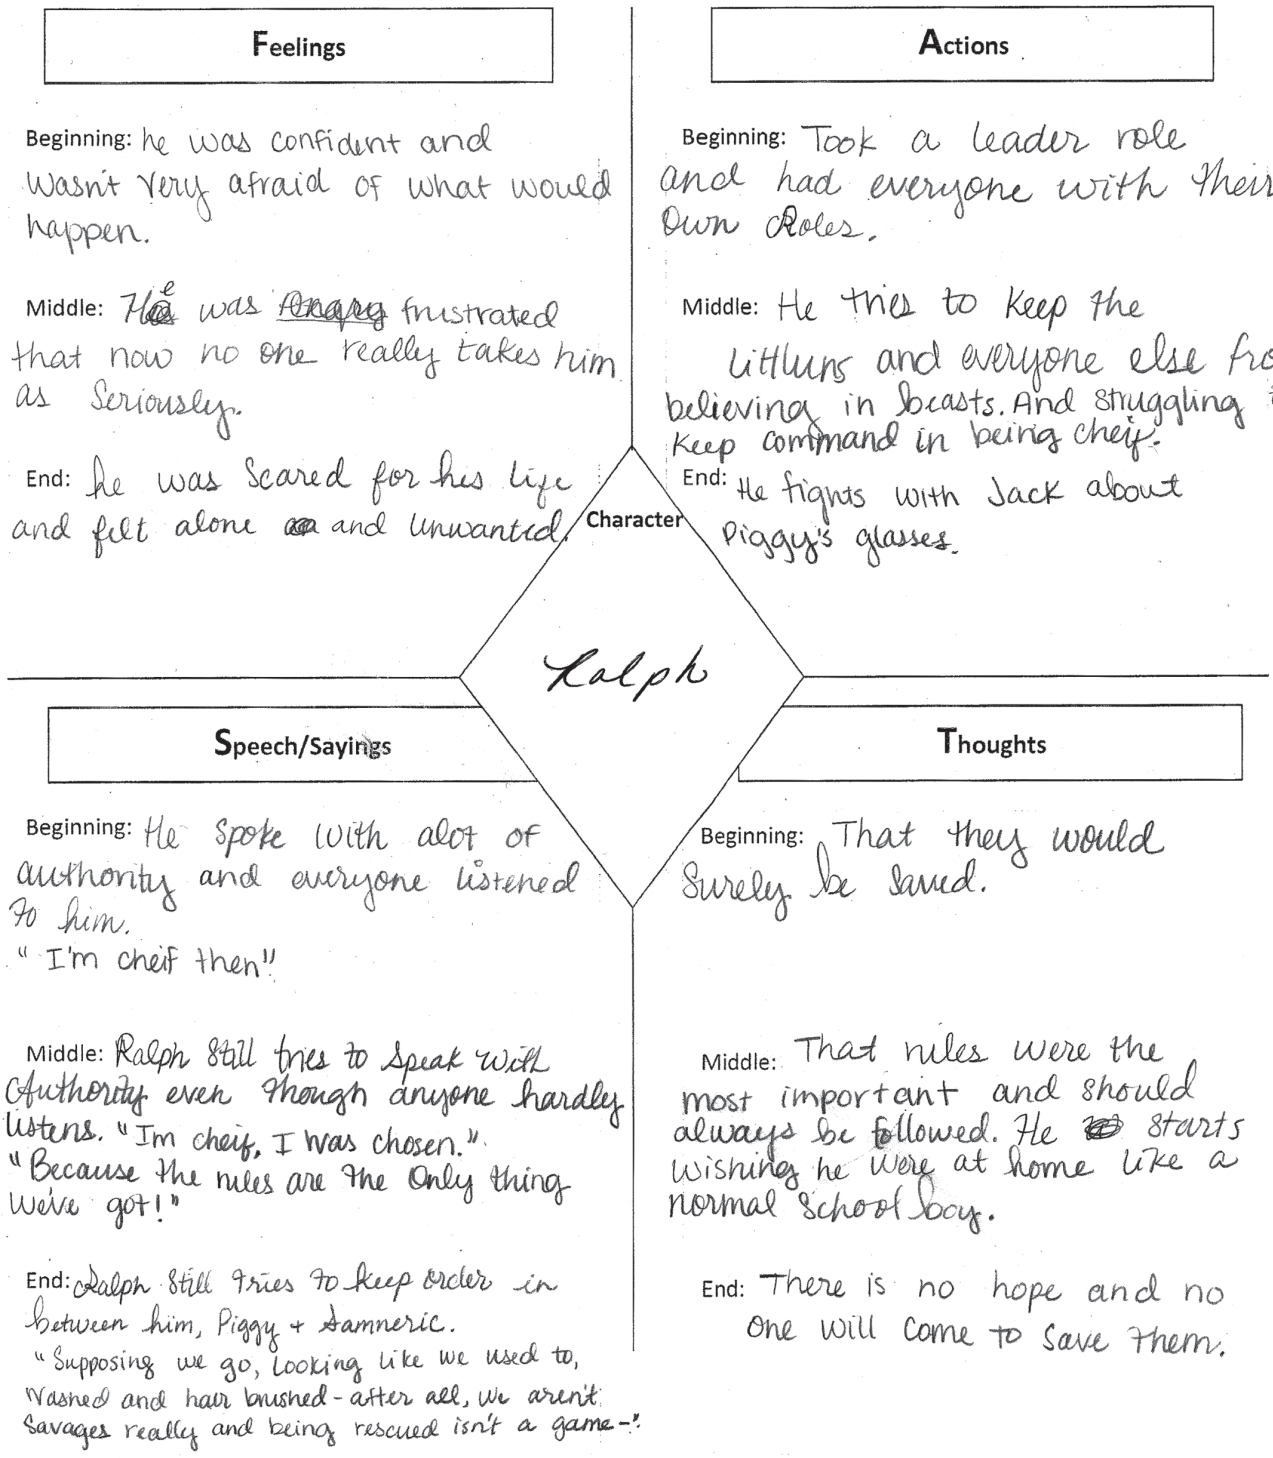 Feelings
Beginning: he was confident and
wasn't very afraid of what would
happen.
Middle: He was frustrated
that now no one really takes him
as seriously.
End: he was scared for his life
and felt alone and unwanted.
Actions
Beginning: Took a leader role
and had everyone with their
own Roles.
Middle: He tries to keep the
littluns and everyone else fro
believing in beasts. And struggling t
keep command in being cheif.
End: He fights with Jack about
Piggy's glasses.
Character
Ralph
Speech/Sayings
Beginning: He spoke with alot of
authority and everyone listened
to him.
"I'm cheif then"
Middle: Ralph still tries to speak with
Authority even though anyone hardly
listens. "I'm cheif, I was chosen."
"Because the rules are the only thing
we've got!"
End: Ralph still tries to keep order in
between him, Piggy + Samneric.
"Supposing we go, looking like we used to,
washed and hair brushed - after all, we aren't
savages really and being rescued isn't a game-".
Thoughts
Beginning: That they would
surely be saved.
Middle: That rules were the
most important and should
always be followed. He starts
wishing he were at home like a
normal school boy.
End: There is no hope and no
one will come to save them.